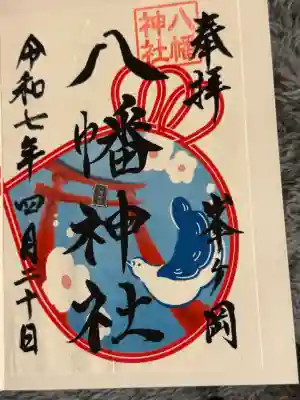 奉拝
八幡
神社
峯ヶ岡
八幡神社
令和七年 四月二十日